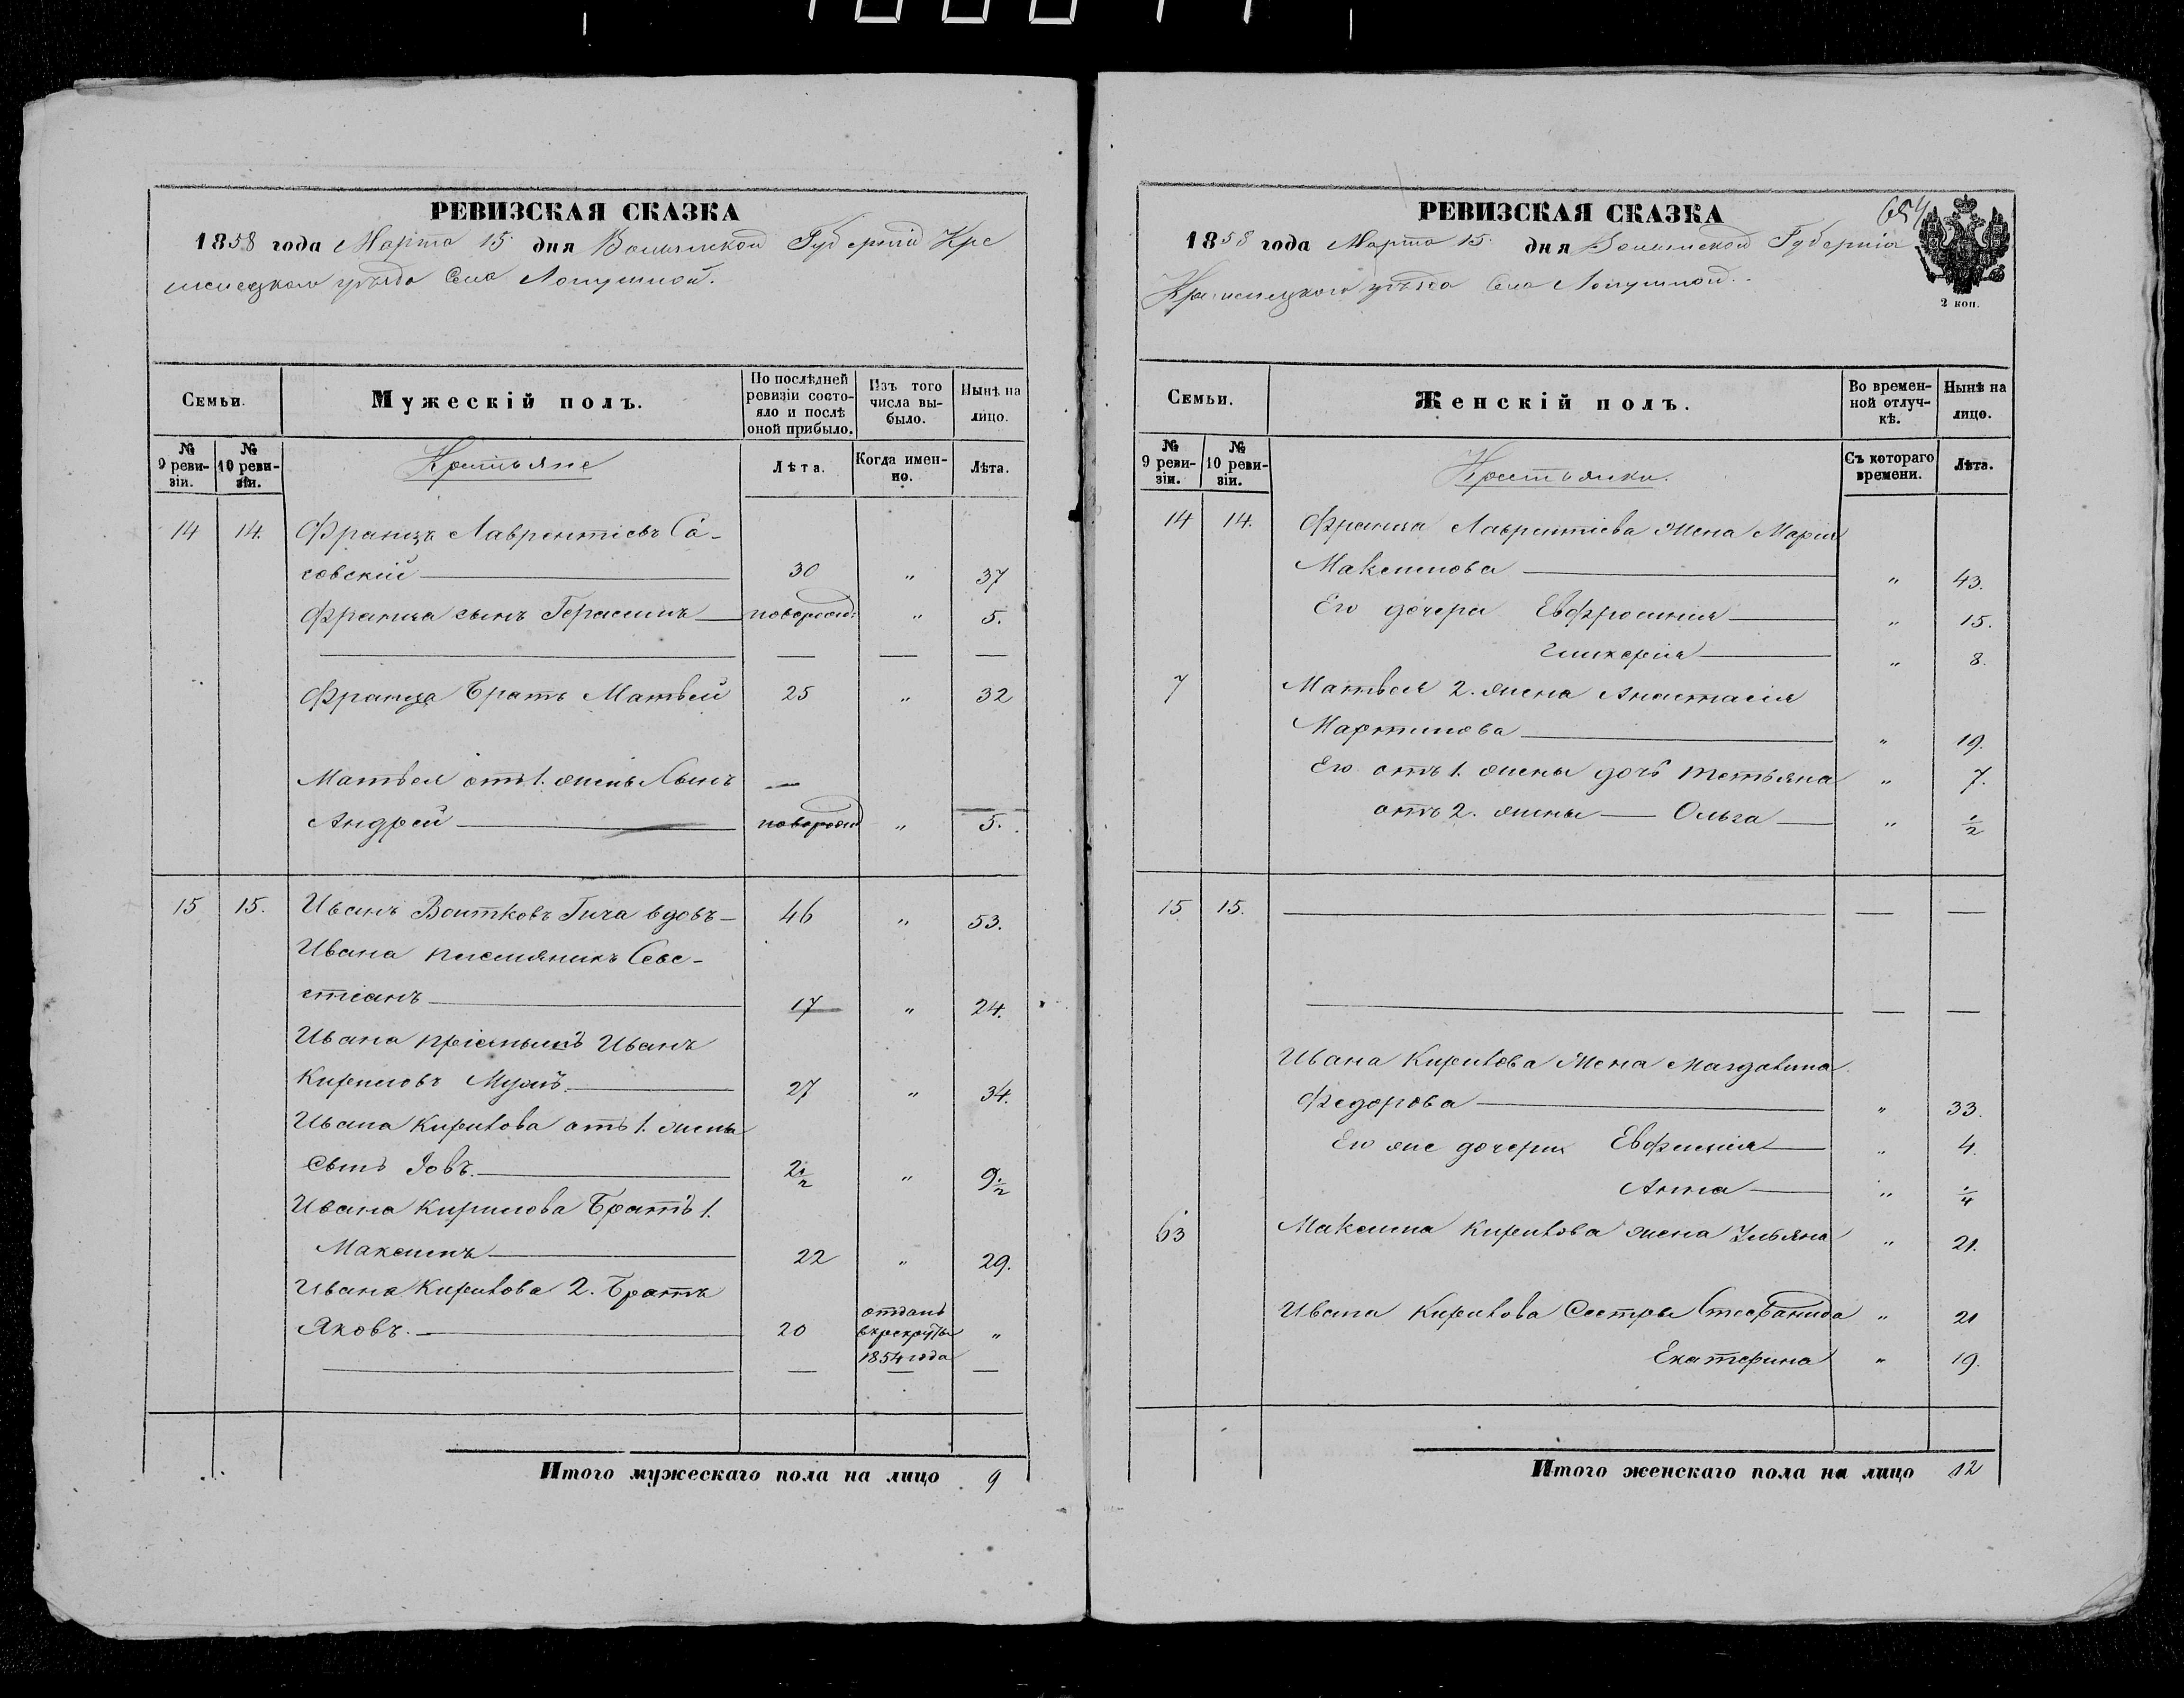 РЕВИЗСКАЯ СКАЗКА
1858 года Марта 15 дня Волынской Губерніи Кре
менецкого уѣзда Села Лопушной.
Семьи.
Мужескій полъ.
По послѣдней ревизіи состояло и послѣ оной прибыло.
Изъ того числа выбыло.
Нынѣ на лицо.
№ 9 ревизіи.
№ 10 ревизіи.
Крестьяне
Лѣта.
Когда именно.
Лѣта.
14 14. Францъ Лаврентіевъ Са-
совскій 30 " 37
Франца сынъ Герасимъ новорожд: " 5.
Франца Братъ Матвей 25 " 32
Матвея отъ 1. жены Сынъ
Андрей новорожд " 5.
15 15. Иванъ Воитковъ Гича вдовъ 46 " 53.
Ивана племяникъ Севе-
стіанъ 17 " 24.
Ивана пріемышъ Иванъ
Кириловъ 27 " 34.
Ивана Кирилова отъ 1. жены
Сынъ Іовъ. 2 1/2 " 9 1/2
Ивана Кирилова Братъ 1.
Максимъ 22 " 29.
Ивана Кирилова 2. Братъ
Яковъ. 20 отданъ в рекруты 1854 года "
Итого мужескаго пола на лицо 9
РЕВИЗСКАЯ СКАЗКА
654
1858 года Марта 15. дня Волынской Губерніи
Кременецкого уѣзда Села Лопушной.
2 коп.
Семьи.
Женскій полъ.
Во временной отлучкѣ.
Нынѣ на лицо.
№ 9 ревизіи.
№ 10 ревизіи.
Крестьянки.
Съ котораго времени.
Лѣта.
14 14. Франца Лаврентіева Жена Марія
Максимова " 43.
Его дочери Евфросинія " 15.
Гликерія " 8.
7 Матвея 2. жена Анастасія
Мартинова " 19.
Его отъ 1. жены дочь Тетьяна " 7.
отъ 2. жены Ольга " 1/2
15 15.
Ивана Кирилова Жена Магдалина
Федорова " 33.
Его же дочери Евфимія " 4.
Анна " 1/4
63 Максима Кирилова жена Ульяна " 21.
Ивана Кирилова Сестры Стефанида " 21
Екатерина " 19.
Итого женскаго пола на лицо 12